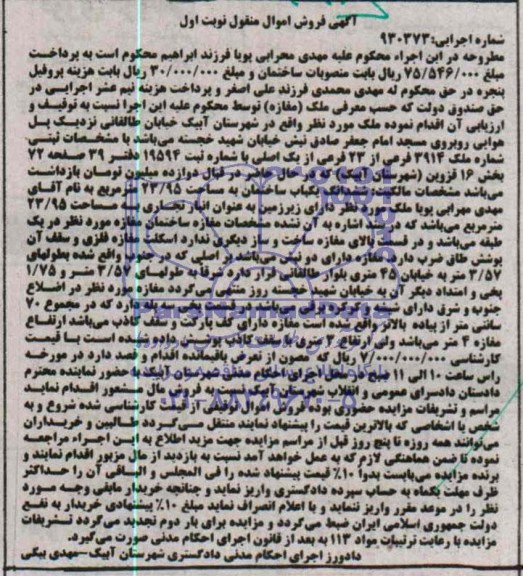 آگهی فروش اموال منقول نوبت اول
شماره اجرایی: ۹۳۰۳۷۳
مطروحه در این اجراء محکوم علیه مهدی محرابی پویا فرزند ابراهیم محکوم است به پرداخت
مبلغ ۷۵/۵۴۶/۰۰۰ ریال بابت منصوبات ساختمان و مبلغ ۳۰/۰۰۰/۰۰۰ ریال بابت هزینه پروفیل
پنجره در حق محکوم له مهدی محمدی فرزند علی اصغر و پرداخت هزینه نیم عشر اجرایی در
حق صندوق دولت که حسب معرفی ملک (مغازه) توسط محکوم علیه این اجرا نسبت به توقیف و
ارزیابی آن اقدام نموده ملک مورد نظر واقع در شهرستان آبیک خیابان طالقانی نزدیک پل
هوایی روبروی مسجد امام جعفر صادق نبش خیابان شهید خجسته می‌باشد با مشخصات ثبتی
شماره ملک ۳۹۱۴ فرعی از ۲۳ فرعی از یک اصلی با شماره ثبت ۱۹۵۹۴ دفتر ۳۹ صفحه ۷۲
بخش ۱۶ قزوین (شهرستان آبیک) که در حال حاضر در قبال دوازده میلیون تومان بازداشت
می‌باشد مشخصات مالکیت: ششدانگ یکباب ساختمان به مساحت ۲۳/۹۵ مترمربع به نام آقای
مهدی مهرابی پویا ملک مورد نظر دارای زیرزمین به عنوان انبار تجاری به مساحت ۲۳/۹۵
مترمربع می‌باشد که در سند اشاره به آن نشده مشخصات مغازه ساختمان مغازه مورد نظر در یک
طبقه می‌باشد و در قسمت بالای مغازه ساخت و ساز دیگری ندارد اسکلت مغازه فلزی و سقف آن
پوشش طاق ضربی دارد مغازه دارای دو نبش می‌باشد بر اصلی که در جنوب واقع شده بطولهای
۳/۵۷ متر به خیابان ۴۵ متری بلوار طالقانی قرار دارد شرقا به طولهای ۳/۵۷ متر و ۱/۷۵
پخی و امتداد دیگر آن به خیابان شهید خجسته روز منتهی می‌گردد مغازه مورد نظر در اضلاع
جنوب و شرق دارای شیشه و کرکره برقی می‌باشد در قسمت پخی سه پله دارد که در مجموع ۷۰
سانتی متر از پیاده بالاتر واقع شده است مغازه دارای کف پارکت و سقف کاذب می‌باشد ارتفاع
مغازه ۴ متر می‌باشد ولی ارتفاع ۳ متری با سقف کاذب پوشش داده شده است با قیمت
کارشناسی ۷/۰۰۰/۰۰۰/۰۰۰ ریال که مصون از تعرض باقیمانده اقدام و قصد دارد در مورخه
راس ساعت ۱۰ الی ۱۱ صبح در محل اجرای احکام مدنی شهرستان آبیک با حضور نماینده محترم
دادستان دادسرای عمومی و انقلاب شهرستان آبیک نسبت به فروش مال مستعور اقدام نماید
مراسم و تشریفات مزایده حضوری بوده فروش اموال توقیفی از قیمت کارشناسی شده شروع و به
شخص یا اشخاصی که بالاترین قیمت را پیشنهاد نمایند منتقل می‌گردد طالبین و خریداران
می‌توانند همه روزه تا پنج روز قبل از مراسم مزایده جهت مزید اطلاع به این اجراء مراجعه
نموده تا ضمن هماهنگی لازم که به عمل خواهد آمد نسبت به بازدید از مال مزبور اقدام نمایند و
برنده مزایده می‌بایست بدوا ۱۰٪ قیمت پیشنهاد شده را فی المجلس و الباقی آن را حداکثر
ظرف مهلت یکماه به حساب سپرده دادگستری واریز نماید و چنانچه خریدار مابقی وجه مورد
نظر را در موعد مقرر واریز ننماید و یا اعلام انصراف نماید مبلغ ۱۰٪ پیشنهادی خریدار به نفع
دولت جمهوری اسلامی ایران ضبط می‌گردد و مزایده برای بار دوم تجدید می‌گردد تشریفات
مزایده با رعایت ترتیبات مواد ۱۱۳ به بعد از قانون اجرای احکام مدنی صورت می‌گیرد.
دادورز اجرای احکام مدنی دادگستری شهرستان آبیک-مهدی بیگی